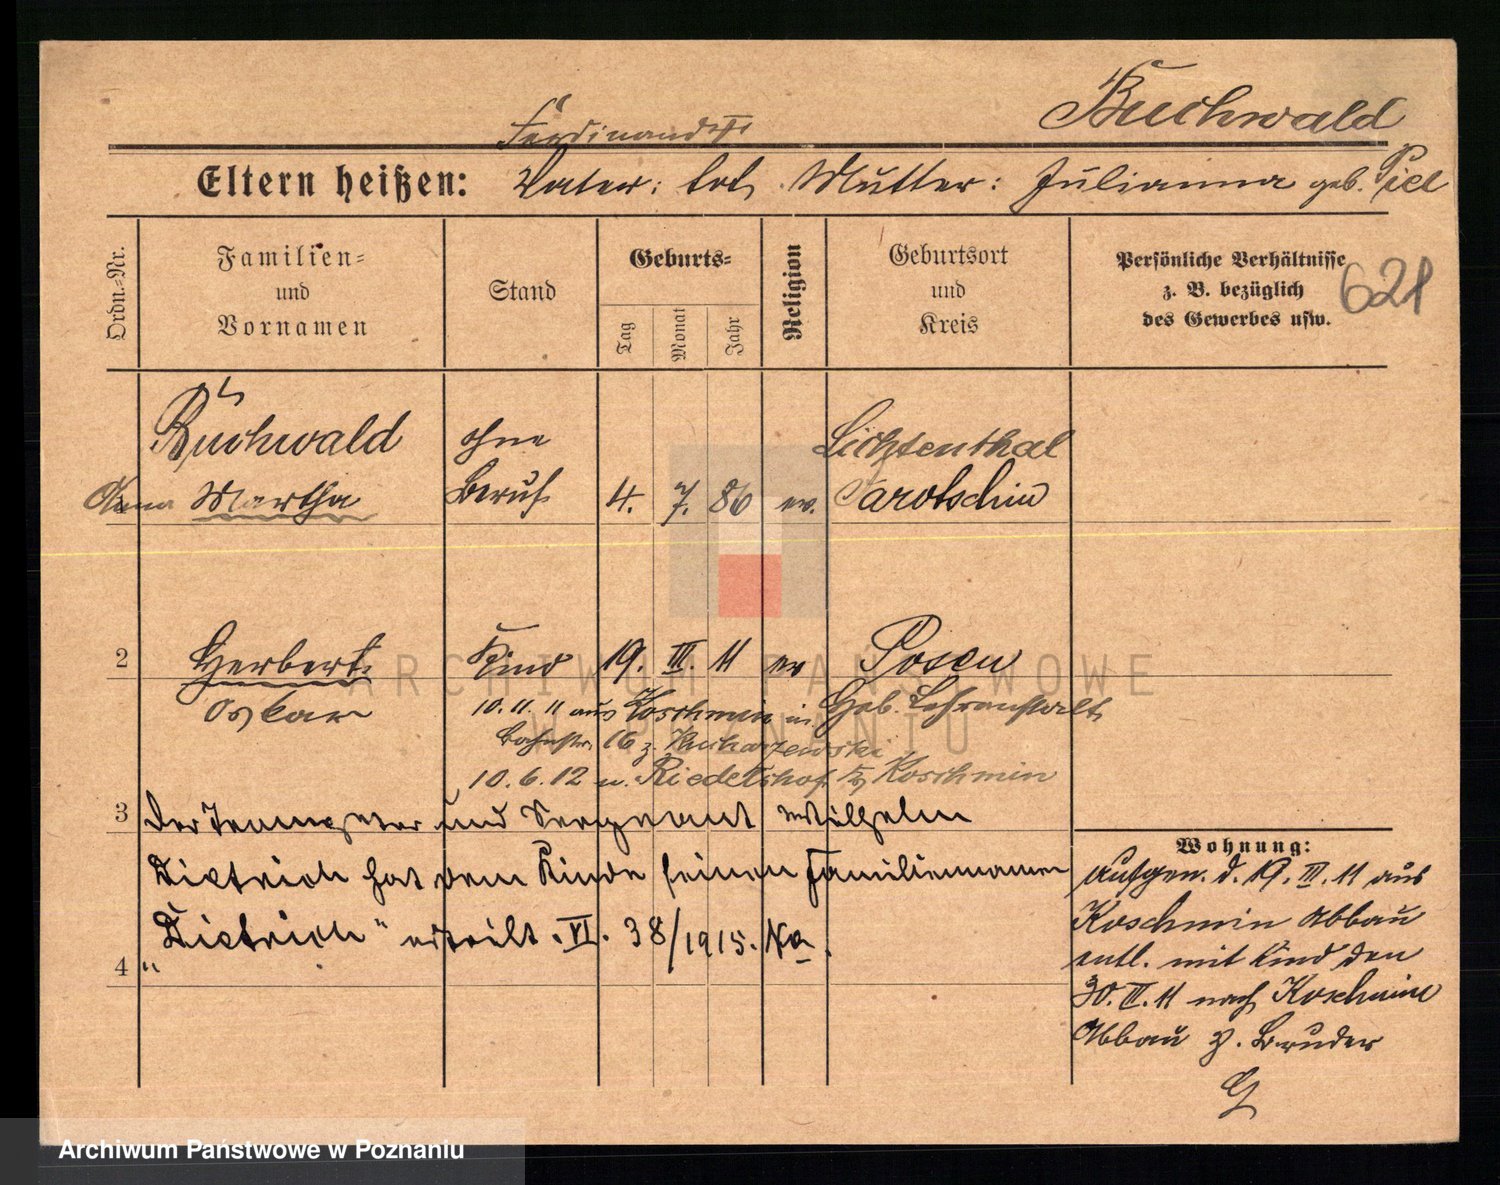 Buchwald
Ferdinand †
Eltern heißen: Vater: tot, Mutter: Julianna geb. Piel
Ordn.-Nr.
Familien-
und
Vornamen
Stand
Geburts-
Tag
Monat
Jahr
Religion
Geburtsort
und
Kreis
Persönliche Verhältnisse
z. B. bezüglich
des Gewerbes usw.
621
Buchwald ohne Lichtenthal
Anna Martha Beruf 4. 7. 86 ev. Jarotschin
2 Herbert Kind 19. III. 11 ev Posen
Oskar 10.11.11 aus Koschmin in Geb. Lehranstalt
Bahnstr. 16 z. Kucharzewski
10.6.12 n. Riedelshof Koschmin
3 Der Trompeter und Sergeant Wilhelm
Dietrich hat dem Kinde seinen Familiennamen
„Dietrich" erteilt. VI. 38/1915.
4
Wohnung:
Aufgen. d. 19. III. 11 aus
Koschmin Abbau
entl. mit Kind den
30. III. 11 nach Koschmin
Abbau z. Bruder
ARCHIWUM PAŃSTWOWE
W POZNANIU
Archiwum Państwowe w Poznaniu